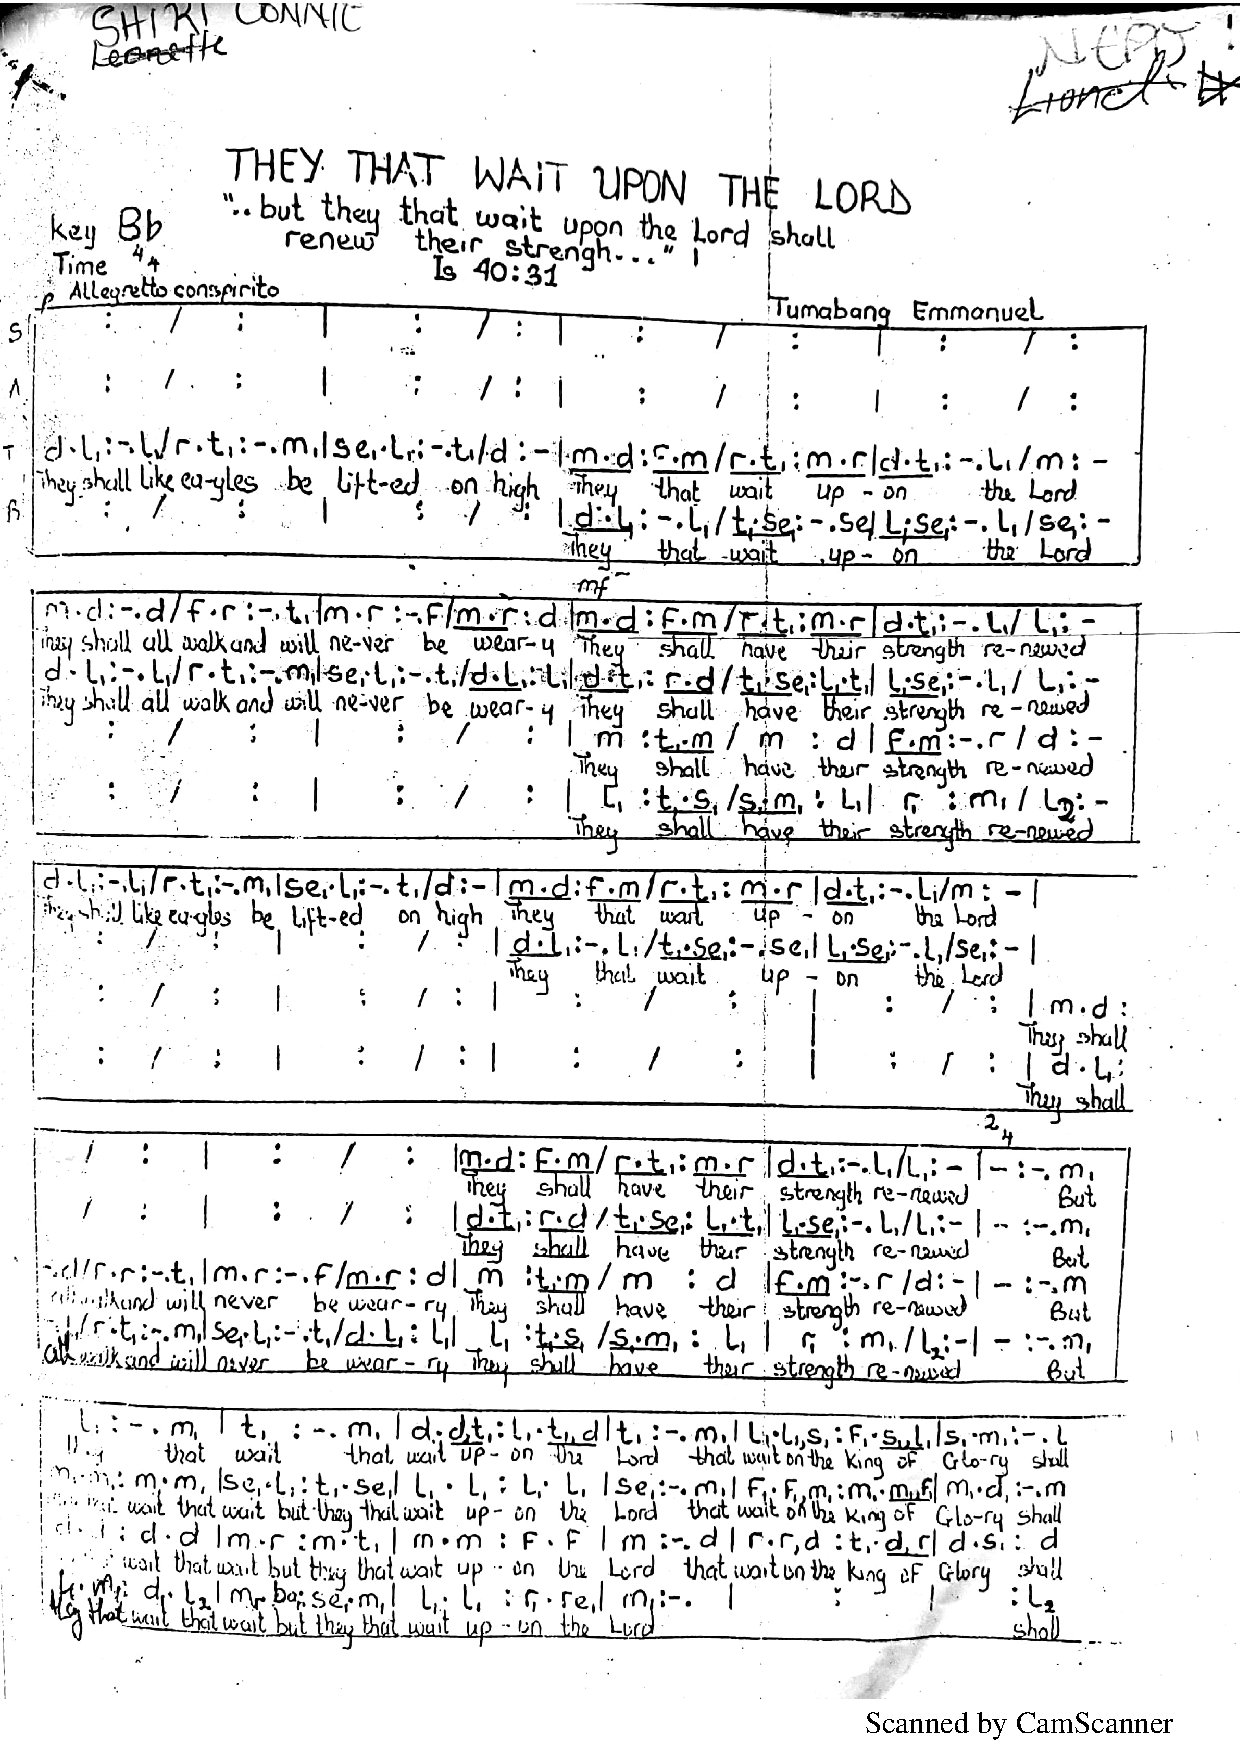 SHIRI CONNIE
Leonette
NEPJ !
Lionel
THEY THAT WAIT UPON THE LORD
"..but they that wait upon the Lord shall
renew their strengh..."
Is 40:31
Key Bb
Time 4 4
Allegretto conspirito
p
Tumabang Emmanuel
S : / : | : / : | : / : | : / :
A : / : | : / : | : / : | : / :
T d.l₁:-.l₁/r.t₁:-.m₁|se₁.l₁:-.t₁/d:-|m.d:f.m/r.t₁:m.r|d.t₁:-.l₁/m:-
They shall like ea-gles be lift-ed on high They that wait up-on the Lord
B : / : | : / : |d.l₁:-.l₁/t₁.se₁:-.se₁|l₁.se₁:-.l₁/se₁:-
They that wait up-on the Lord
mf
m.d:-.d/f.r:-.t₁|m.r:-.f/m.r:d|m.d:f.m/r.t₁:m.r|d.t₁:-.l₁/l₁:-
They shall all walk and will ne-ver be wear-y They shall have their strength re-newed
d.l₁:-.l₁/r.t₁:-.m₁|se₁.l₁:-.t₁/d.l₁:l₁|d.t₁:r.d/t₁.se₁:l₁.t₁|l₁.se₁:-.l₁/l₁:-
They shall all walk and will ne-ver be wear-y They shall have their strength re-newed
: / : | : / : |m:t₁.m/m:d|f.m:-.r/d:-
They shall have their strength re-newed
: / : | : / : |l₁:t₁.s₁/s₁.m₁:l₁|r₁:m₁/l₂:-
They shall have their strength re-newed
d.l₁:-.l₁/r.t₁:-.m₁|se₁.l₁:-.t₁/d:-|m.d:f.m/r.t₁:m.r|d.t₁:-.l₁/m:-|
They shall like ea-gles be lift-ed on high They that wait up-on the Lord
: / : | : / : |d.l₁:-.l₁/t₁.se₁:-.se₁|l₁.se₁:-.l₁/se₁:-|
They that wait up-on the Lord
: / : | : / : | : / : | : / : |m.d:
They shall
: / : | : / : | : / : | : / : |d.l₁:
They shall
2 4
/ : | : / : |m.d:f.m/r.t₁:m.r|d.t₁:-.l₁/l₁:-|-:-.m₁
They shall have their strength re-newed But
/ : | : / : |d.t₁:r.d/t₁.se₁:l₁.t₁|l₁.se₁:-.l₁/l₁:-|-:-.m₁
They shall have their strength re-newed But
-.d/r.r:-.t₁|m.r:-.f/m.r:d|m:t₁.m/m:d|f.m:-.r/d:-|-:-.m
all walk and will never be wear-ry They shall have their strength re-newed But
/r.t₁:-.m₁|se₁.l₁:-.t₁/d.l₁:l₁|l₁:t₁.s₁/s₁.m₁:l₁|r₁:m₁/l₂:-|-:-.m₁
all walk and will never be wear-ry They shall have their strength re-newed But
l₁:-.m₁|t₁:-.m₁|d.d,t₁:l₁.t₁,d|t₁:-.m₁|l₁.l₁,s₁:f₁.s₁,l₁|s₁.m₁:-.l
They that wait that wait up-on the Lord that wait on the King of Glo-ry shall
m₁.m₁:m₁.m₁|se₁.l₁:t₁.se₁|l₁.l₁:l₁.l₁|se₁:-.m₁|f₁.f₁,m₁:m₁.m₁,f₁|m₁.d₁:-.m
wait that wait but they that wait up-on the Lord that wait on the King of Glo-ry shall
:d.d|m.r:m.t₁|m.m:f.f|m:-.d|r.r,d:t₁.d,r|d.s₁:d
wait that wait but they that wait up-on the Lord that wait on the King of Glory shall
m₁:d₁.l₂|m₁.ba₁:se₁.m₁|l₁.l₁:r₁.re₁|m₁:-.| : | :l₂
they that wait that wait but they that wait up-on the Lord shall
Scanned by CamScanner